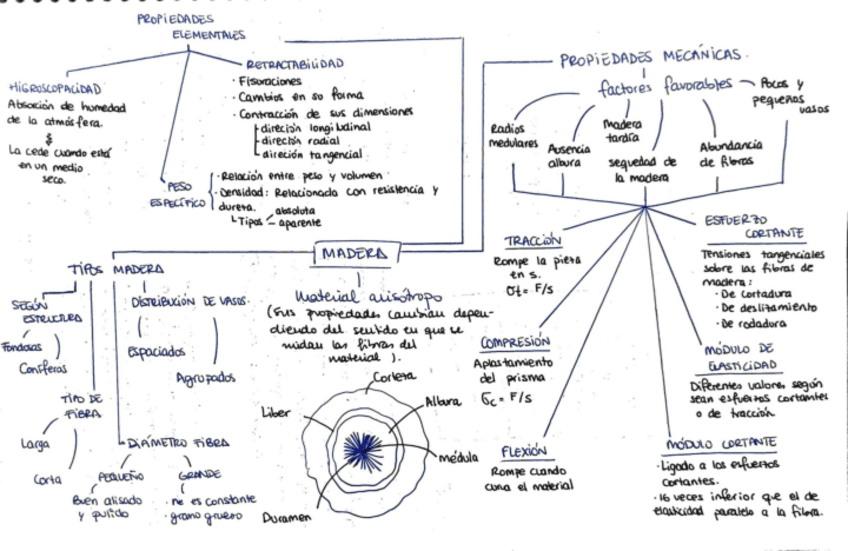 PROPIEDADES
ELEMENTALES
HIGROSCOPACIDAD
Absorción de humedad
de la atmósfera.
&
La cede cuando está
en un medio
seco.
RETRACTABILIDAD
· Fisuraciones
· Cambios en su forma
· Contracción de sus dimensiones
direción longitudinal
dirección radial
direción tangencial
PESO
ESPECÍFICO
· Relación entre peso y volumen
· Densidad: Relacionada con resistencia y
dureza.
Tipos
absoluta
aparente
PROPIEDADES MECÁNICAS.
factores favorables
Pocos y
pequeños
vasos
Radios
medulares
Ausencia
albura
Madera
tardía
sequedad de
la madera
Abundancia
de fibras
MADERA
Material anisótropo
(sus propiedades cambian depen-
diendo del sentido en que se
midan las fibras del
material).
TIPOS MADERA
SEGÚN
ESTRUCTURA
Frondosas
Coníferas
DISTRIBUCIÓN DE VASOS.
Espaciados
Agrupados
TIPO DE
FIBRA
Larga
Corta
DIÁMETRO FIBRA
PEQUEÑO
Buen alisado
y pulido
GRANDE
· no es constante
· grano grueso
Corteza
Albura
Liber
médula
Duramen
TRACCIÓN
Rompe la pieza
en s.
σt = F/s
COMPRESIÓN
Aplastamiento
del prisma
σc = F/s
FLEXIÓN
Rompe cuando
curva el material
ESFUERZO
CORTANTE
Tensiones tangenciales
sobre las fibras de
madera:
· De cortadura
· De deslizamiento
· De rodadura
MÓDULO DE
ELASTICIDAD
Diferentes valores según
sean esfuerzos cortantes
o de tracción
MÓDULO CORTANTE
· Ligado a los esfuerzos
cortantes.
· 16 veces inferior que el de
elasticidad paralelo a la fibra.